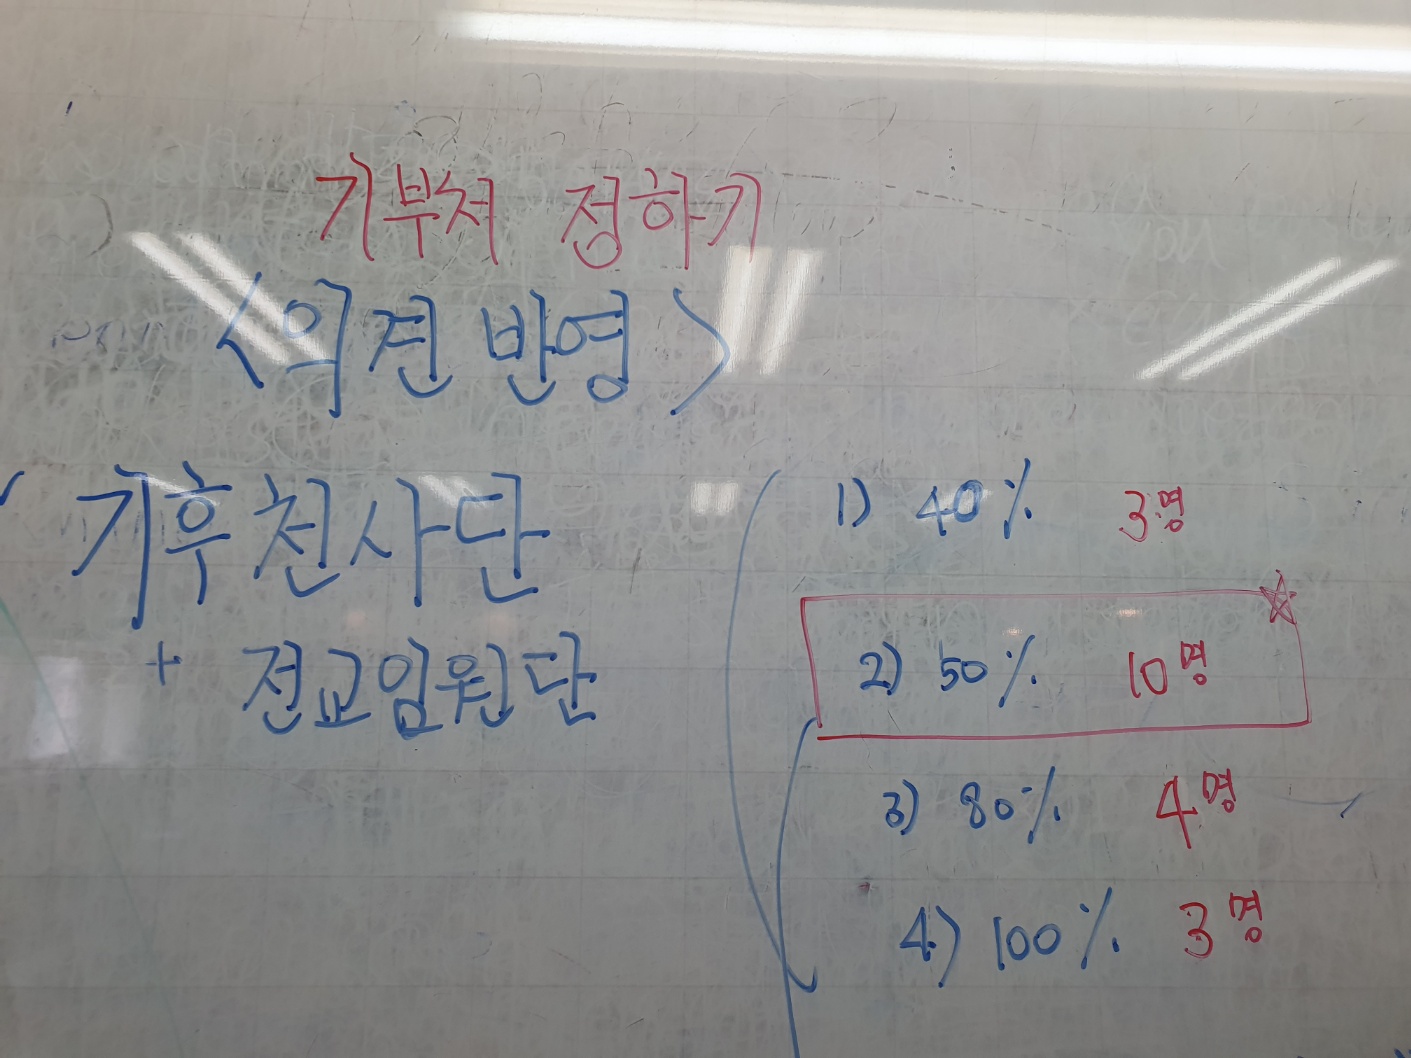 기부처 정하기
<의견 반영>
기후천사단
+ 전교임원단
1) 40% 3명
2) 50% 10명
3) 80% 4명
4) 100% 3명